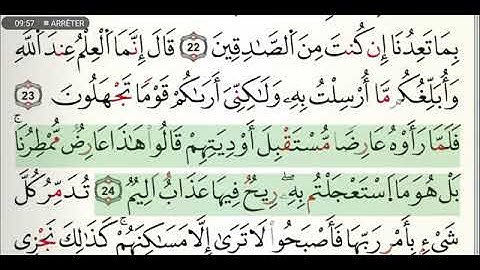 09:57 ■ ARRÊTER
بِمَا تَعِدُنَا إِن كُنتَ مِنَ ٱلصَّـٰدِقِينَ 22 قَالَ إِنَّمَا ٱلْعِلْمُ عِندَ ٱللَّهِ
وَأُبَلِّغُكُم مَّا أُرْسِلْتُ بِهِۦ وَلَـٰكِنِّىٓ أَرَىٰكُمْ قَوْمًا تَجْهَلُونَ 23
فَلَمَّا رَأَوْهُ عَارِضًا مُّسْتَقْبِلَ أَوْدِيَتِهِمْ قَالُوا۟ هَـٰذَا عَارِضٌ مُّمْطِرُنَا ۚ
بَلْ هُوَ مَا ٱسْتَعْجَلْتُم بِهِۦ ۖ رِيحٌ فِيهَا عَذَابٌ أَلِيمٌ 24 تُدَمِّرُ كُلَّ
شَىْءٍۭ بِأَمْرِ رَبِّهَا فَأَصْبَحُوا۟ لَا تَرَىٰٓ إِلَّا مَسَـٰكِنُهُمْ ۚ كَذَٰلِكَ نَجْزِى